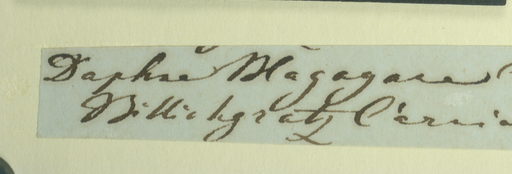 Daphne Magagare
Billichgratz Carnia